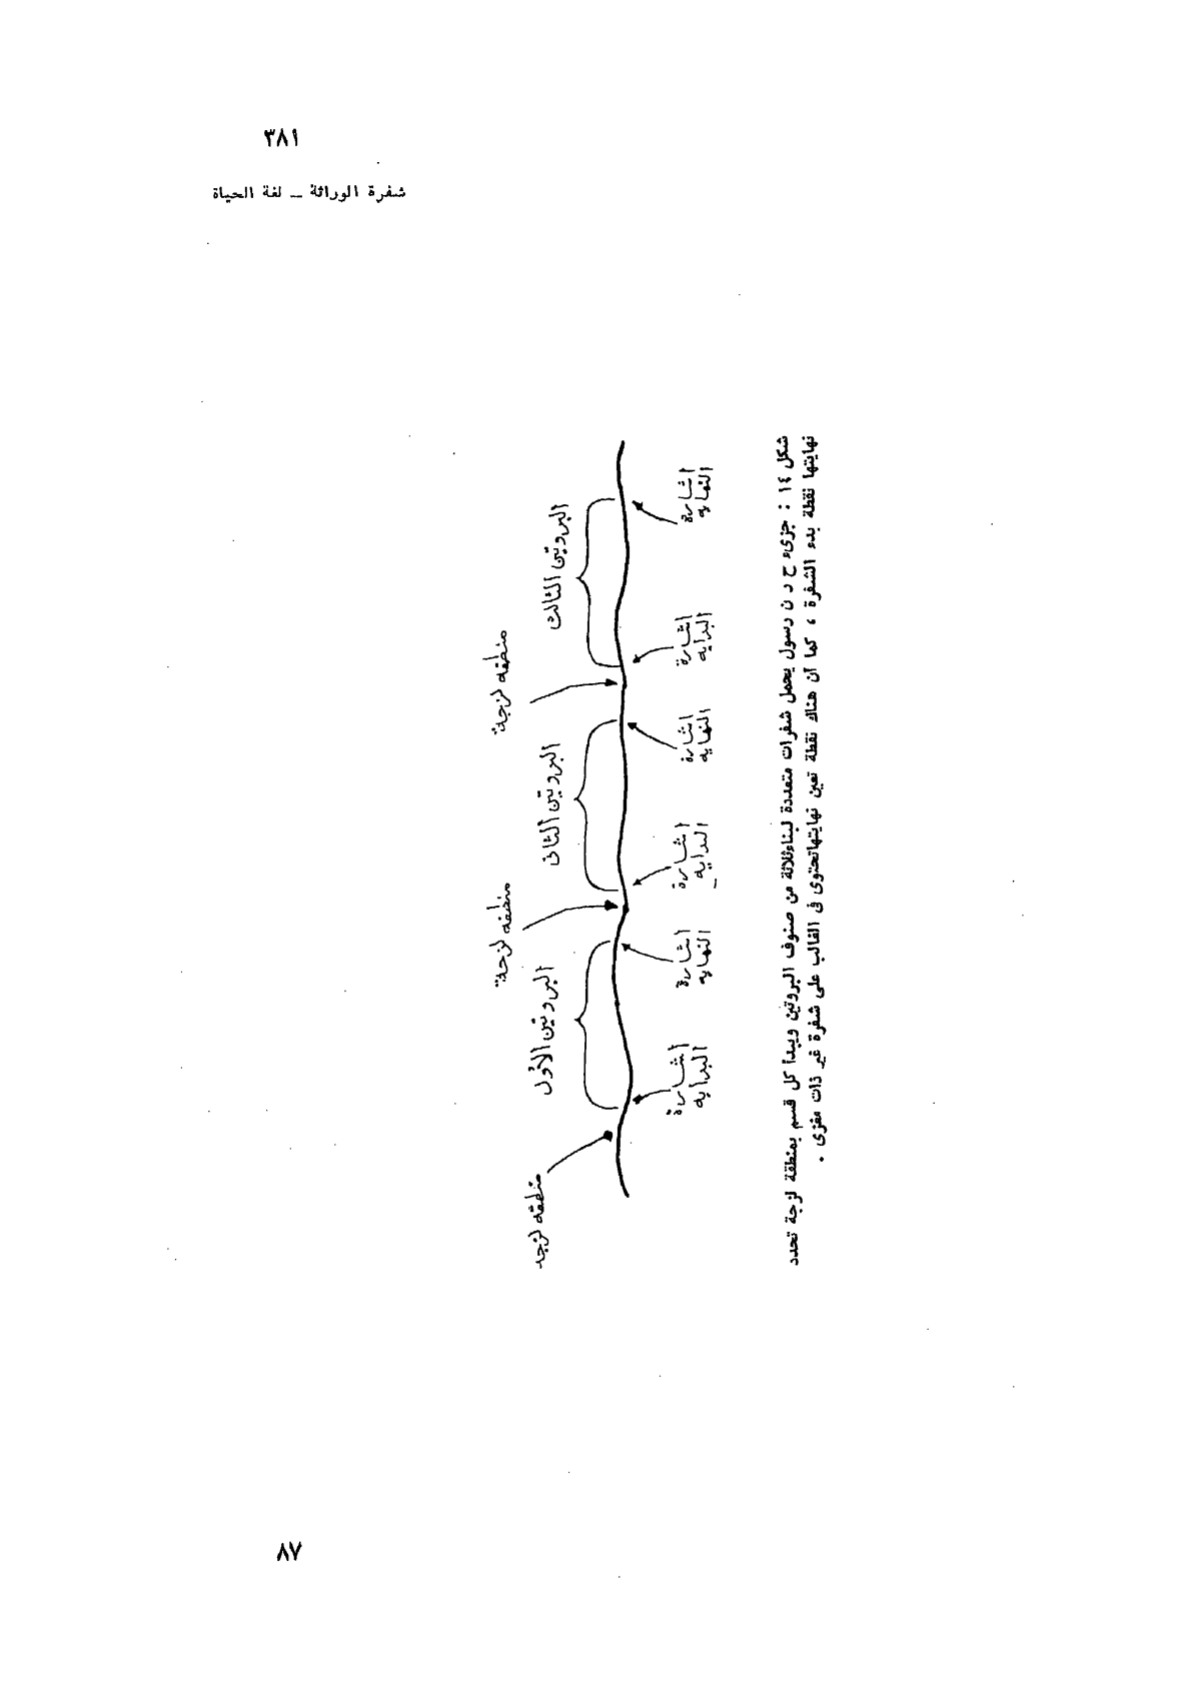 ٣٨١
شفرة الوراثة ــ لغة الحياة
منطقه لزجة
منطقه لزجة
منطقه لزجه
البروتين الثالث
البروتين الثانى
البروتين الأول
اشارة
النهايه
اشارة
البدايه
اشارة
النهايه
اشارة
البدايه
اشارة
النهايه
اشارة
البدايه
شكل ١٤ : جزىء ح د ن رسول يحمل شفرات متعددة لبناء ثلاثة من صنوف البروتين ويبدأ كل قسم بمنطقة لزجة تحدد
نهايتها نقطة بدء الشفرة ، كما أن هناك نقطة تعين نهايتها تحتوى فى الغالب على شفرة غير ذات مغزى .
٨٧